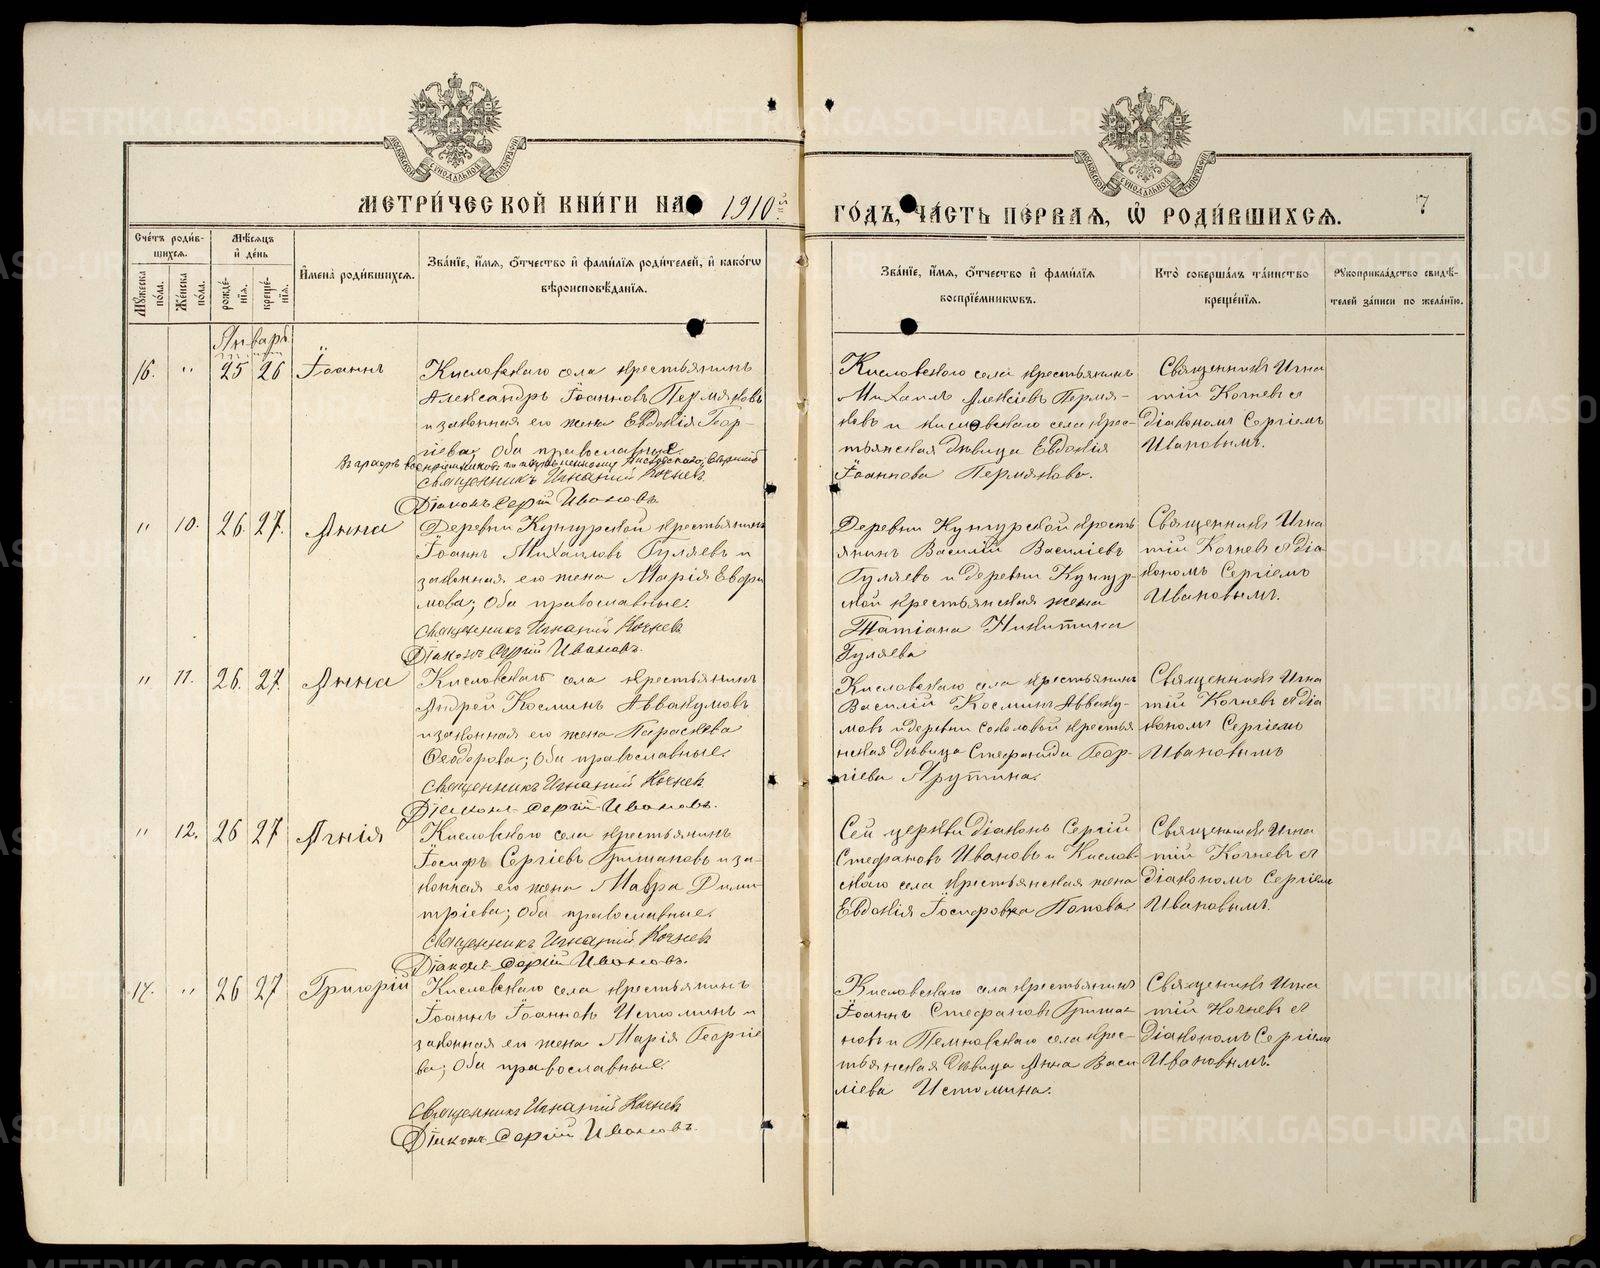 МОСКОВСКОЙ СУНОДАЛЬНОЙ ТИПОГРАФІИ
МОСКОВСКОЙ СУНОДАЛЬНОЙ ТИПОГРАФІИ
МЕТРИ́ЧЕСКОЙ КНИ́ГИ НА 1910
ГО́ДЪ, ЧА́СТЬ ПЕ́РВАѦ, Ѿ РОДИ́ВШИХСѦ.
7
Сче́тъ роди́в-
шихсѧ.
Мꙋ́жеска по́ла.
Же́нска по́ла.
Мѣ́сѧцъ
и҆ де́нь
рожде́-
нїѧ.
креще́-
нїѧ.
И҆мена̀ роди́вшихсѧ.
Зва́нїе, и҆́мѧ, ѻ҆́тчество и҆ фами́лїѧ роди́телей, и҆ како́гѡ
вѣроисповѣ́данїѧ.
Зва́нїе, и҆́мѧ, ѻ҆́тчество и҆ фами́лїѧ
воспрїе́мникѡвъ.
Кто̀ соверша́лъ та́инство
креще́нїѧ.
Рꙋкоприкла́дство свидѣ́-
телей за́писи по жела́нїю.
Январь
16. " 25 26 Іоаннъ
Кисловскаго села крестьянинъ
Александръ Іоанновъ Пермяковъ
и законная его жена Евдокія Геор-
гіева; Оба православные.
Священникъ Игнатій Кочневъ
Діаконъ Сергій Ивановъ
Кисловскаго села крестьянинъ
Михаилъ Алексіевъ Пермя-
ковъ и Кисловскаго села крес-
тьянская дѣвица Евдокія
Іоаннова Пермякова.
Священникъ Игна
тій Кочневъ съ
діакономъ Сергіемъ
Ивановымъ.
" 10. 26. 27. Анна
Деревни Кунгурской крестьянинъ
Іоаннъ Михаиловъ Гуляевъ и
законная его жена Марія Евфи
мова; Оба православные.
Священникъ Игнатій Кочневъ
Діаконъ Сергій Ивановъ.
Деревни Кунгурской кресть
янинъ Василій Василіевъ
Гуляевъ и деревни Кунгур-
ской крестьянская жена
Татіана Никитина
Гуляева
Священникъ Игна
тій Кочневъ съ діа
кономъ Сергіемъ
Ивановымъ.
" 11. 26. 27. Анна
Кисловскаго села крестьянинъ
Андрей Косминъ Аввакумовъ
и законная его жена Параскева
Ѳеодорова; Оба православные.
Священникъ Игнатій Кочневъ
Діаконъ Сергій Ивановъ.
Кисловскаго села крестьянинъ
Василій Косминъ Авваку-
мовъ и деревни Соколовой крестья
нская дѣвица Стефанида Геор-
гіева Ярутина.
Священникъ Игна
тій Кочневъ съ діа
кономъ Сергіемъ
Ивановымъ
" 12. 26 27 Агнія
Кисловскаго села крестьянинъ
Іосифъ Сергіевъ Гришановъ и за-
конная его жена Мавра Дими
тріева; Оба православные.
Священникъ Игнатій Кочневъ
Діаконъ Сергій Ивановъ.
Сей церкви діаконъ Сергій
Стефановъ Ивановъ и Кислов-
скаго села крестьянская жена
Евдокія Іосифовна Попова.
Священникъ Игна
тій Кочневъ съ
діакономъ Сергіемъ
Ивановымъ.
17. " 26 27 Григорій
Кисловскаго села крестьянинъ
Іоаннъ Іоанновъ Истоминъ и
законная его жена Марія Георгіе
ва; Оба православные.
Священникъ Игнатій Кочневъ
Діаконъ Сергій Ивановъ.
Кисловскаго села крестьянинъ
Іоаннъ Стефановъ Гриша
новъ и Темновскаго села крес-
тьянская дѣвица Анна Васи
ліева Истомина.
Священникъ Игна
тій Кочневъ съ
діакономъ Сергіемъ
Ивановымъ.
METRIKI.GASO-URAL.RU